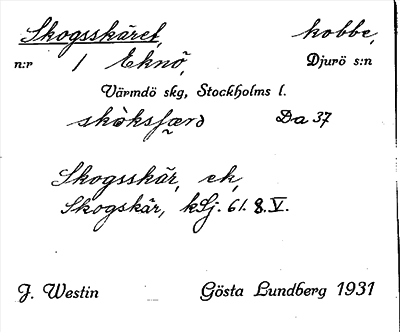 Skogsskäret, kobbe,
n:r 1 Eknö, Djurö s:n
Värmdö skg, Stockholms l.
skòksfærd Da 37
Skogsskär, ek,
Skogskär, kSj. 61. 8. V.
J. Westin Gösta Lundberg 1931